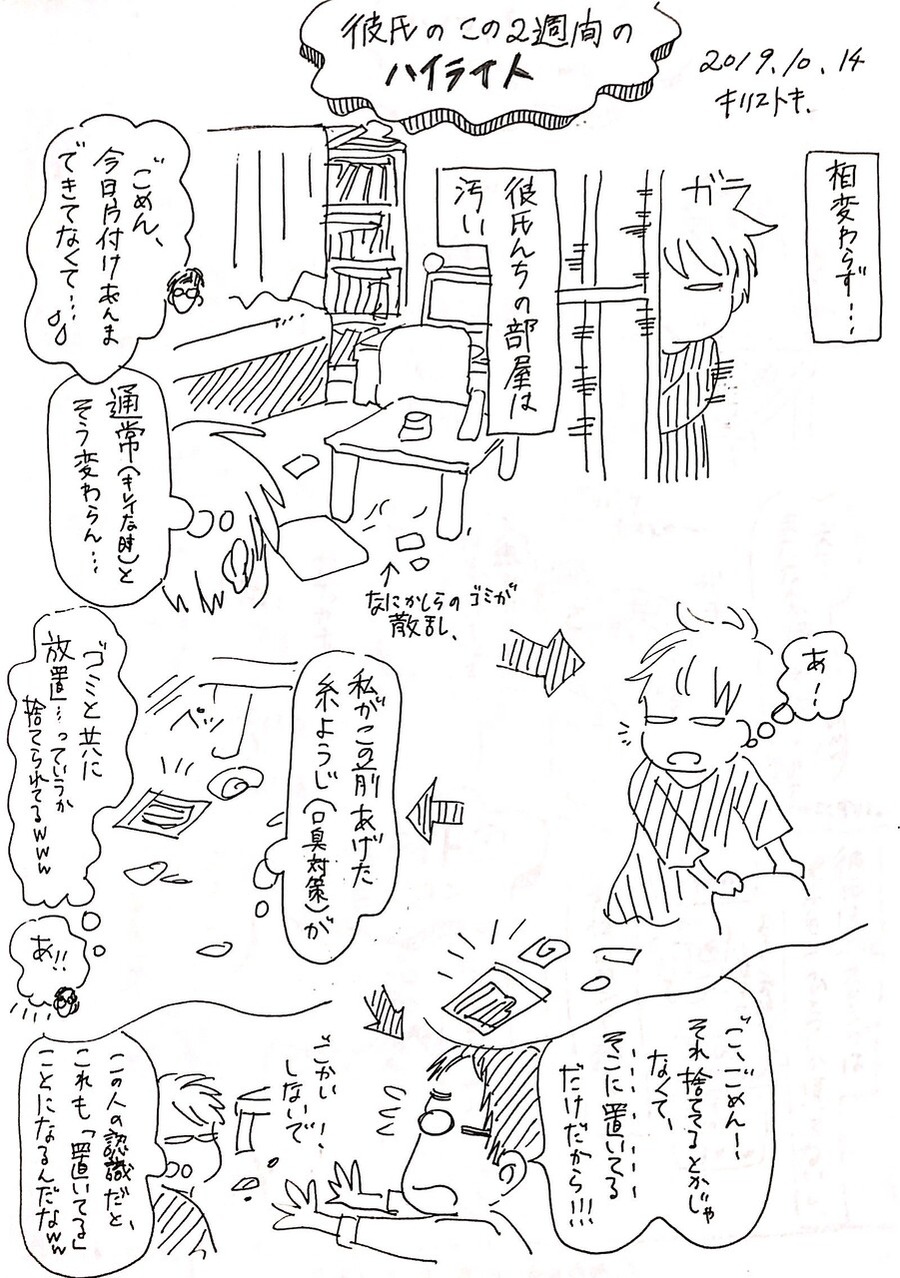 彼氏のこの2週間の
ハイライト
2019.10.14
キリエトキ.
相変わらず…
ガラ
彼氏んちの部屋は
汚い
ごめん、
今日片付けあんま
できてなくて…
通常(キレイな時)と
そう変わらん…
なにかしらのゴミが
散乱、
あ!
私がこの前あげた
糸ようじ(口臭対策)が
ゴミと共に
放置…っていうか
捨てられてるwww
あ!!
ご、ごめんー
それ捨ててるとかじゃ
なくて、
そこに置いてる
だけだから!!!
ごかい
しないで!
この人の認識だと、
これも「置いてる」
ことになるんだなww